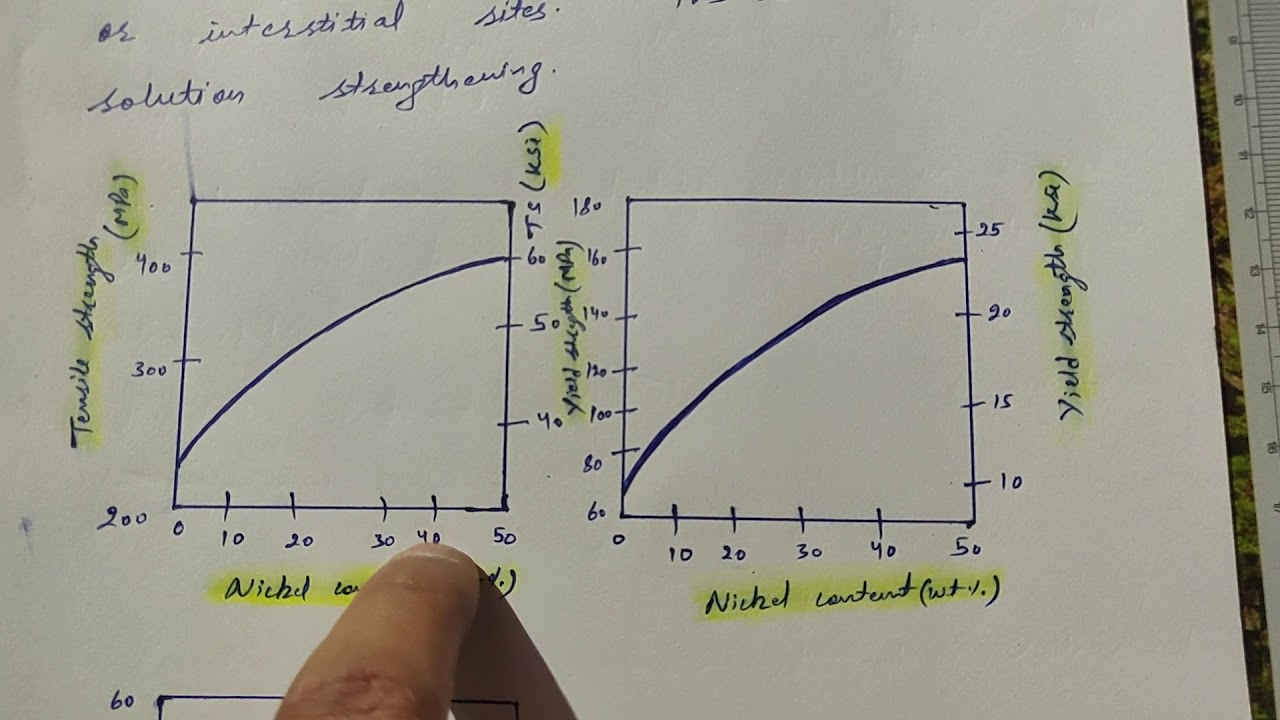 or interstitial sites.
solution strengthening.
Tensile strength (MPa)
400
300
200
0 10 20 30 40 50
Nickel
TS (ksi)
60
50
40
Yield strength (MPa)
180
160
140
120
100
80
60
0 10 20 30 40 50
Nickel content (wt%.)
25
20
15
10
Yield strength (ksi)
60